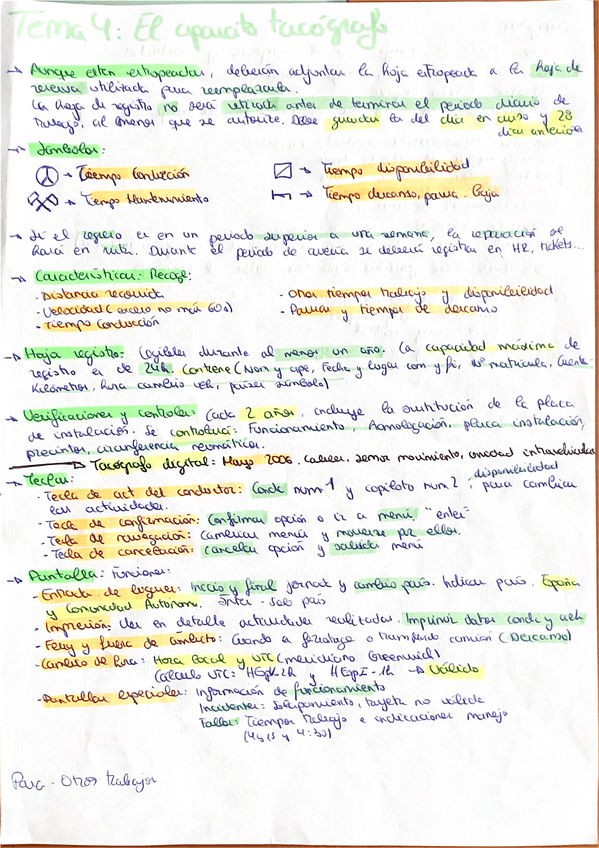 Tema 4: El aparato tacógrafo
→ Aunque estén estropeadas, deberán adjuntar la hoja estropeada a la hoja de
reserva utilizada para reemplazarla.
La hoja de registro no será retirada antes de terminar el periodo diario de
trabajo, al menos que se autorice. Debe guardar la del día en curso y 28
días anteriores
→ Símbolos:
→ Tiempo Conducción
→ Tiempo disponibilidad
→ Tiempo Mantenimiento
→ Tiempo descanso, pausa. Baja
→ Si el regreso es en un periodo superior a una semana, la reparación se
hará en ruta. Durante el periodo de avería se deberá registrar en HR, tickets...
→ Características: Recoge:
- Distancia recorrida
- Otros tiempos trabajo y disponibilidad
- Velocidad (exceso no más 60s)
- Pausas y tiempos de descanso
- Tiempo conducción
→ Hoja registro: Legible durante al menos un año. La capacidad máxima de
registro es de 24h. Contiene (Nom y ape, Fecha y lugar com y fin, Nº matrícula, Cuenta-
Kilómetros, hora cambio veh, países símbolo)
→ Verificaciones y controles: Cada 2 años, incluye la sustitución de la placa
de instalación. Se controla: Funcionamiento, Homologación, placa instalación,
precintos, circunferencia neumáticos.
→ Tacógrafo digital: Mayo 2006. Cables, sensor movimiento, unidad intravehicular
→ Teclas:
- Tecla de act del conductor: Cond num 1 y copiloto num 2, disponibilidad para cambiar
las actividades.
- Tecla de confirmación: Confirmar opción o ir a menú, "enter"
- Tecla de navegación: Cambiar menús y moverse por ellos.
- Tecla de cancelación: cancelar opción y salida menú
→ Pantalla: Funciones:
- Entrada de lugares: Inicio y final jornada y cambio país. Indicar país. España
y Comunidad Autónoma. Inter - solo país
- Impresión: Ver en detalle actividades realizadas. Imprimir datos cond y veh
- Ferry y fuera de ámbito: Cuando a remolque o transbordo camión (Descanso)
- Cambio de hora: Hora local y UTC (meridiano Greenwich)
Cálculo UTC: HEspV-2h y HEspI-1h → Válido
- Pantallas especiales: Información de funcionamiento
Incidentes: Solapamiento, tarjeta no válida
Tiempos trabajo e indicaciones manejo
(4:15 y 4:30)
Para - Otros trabajos